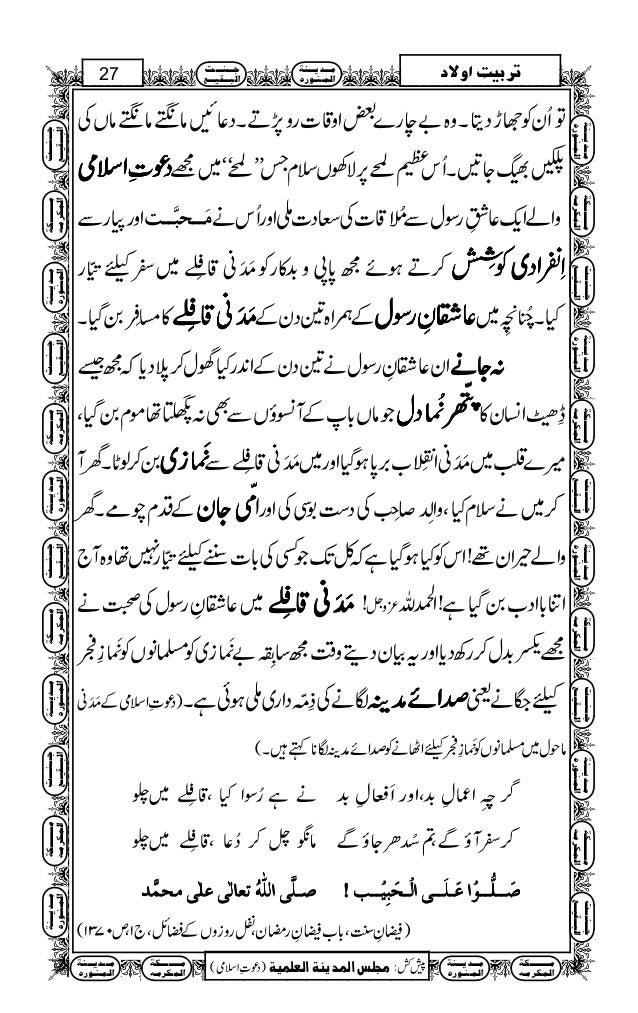 تربیتِ اولاد
27
تو اُن کو جھاڑ دیتا۔ وہ بے چارے بعض اوقات رو پڑتے۔ دعائیں مانگتے مانگتے ماں کی
پلکیں بھیگ جاتیں۔ اُس عظیم لمحے پر لاکھوں سلام جس ’’لمحے‘‘ میں مجھے دعوتِ اسلامی
والے ایک عاشقِ رسول سے مُلاقات کی سعادت ملی اور اُس نے مَحبَّت اور پیار سے
اِنفرادی کوشِش کرتے ہوئے مجھ پاپی و بدکار کو مَدَنی قافِلے میں سفر کیلئے تیّار
کیا۔ چُنانچِہ میں عاشقانِ رسول کے ہمراہ تین دن کے مَدَنی قافِلے کا مسافر بن گیا۔
نہ جانے ان عاشقانِ رسول نے تین دن کے اندر کیا گھول کر پلا دیا کہ مجھ جیسے
ڈھیٹ انسان کا پتھّر نُما دل جو ماں باپ کے آنسوؤں سے بھی نہ پگھلتا تھا موم بن گیا،
میرے قلب میں مَدَنی انقِلاب برپا ہو گیا اور میں مَدَنی قافِلے سے نَمازی بن کر لوٹا۔ گھر آ
کر میں نے سلام کیا، والِد صاحِب کی دست بوسی کی اور امّی جان کے قدم چومے۔ گھر
والے حیران تھے! اس کو کیا ہو گیا ہے کہ کل تک جو کسی کی بات سننے کیلئے تیّار نہیں تھا وہ آج
اتنا باادب بن گیا ہے! الحمدللہ عزوجل! مَدَنی قافِلے میں عاشقانِ رسول کی صحبت نے
مجھے یکسر بدل کر رکھ دیا اور یہ بیان دیتے وقت مجھ سابِقہ بے نَمازی کو مسلمانوں کو نَمازِ فجر
کیلئے جگانے یعنی صدائے مدینہ لگانے کی ذِمّہ داری ملی ہوئی ہے۔ (دعوتِ اسلامی کے مَدَنی
ماحول میں مسلمانوں کو نَمازِ فجر کیلئے اٹھانے کو صدائے مدینہ لگانا کہتے ہیں۔)
گرچِہ اعمالِ بد، اور اَفعالِ بد نے ہے رُسوا کیا، قافِلے میں چلو
کر سفر آؤ گے، تم سُدھر جاؤ گے مانگو چل کر دُعا، قافِلے میں چلو
صَلُّوْا عَلَی الْحَبِیْب! صلَّی اللہُ تعالٰی علٰی محمَّد
(فیضانِ سنت، باب فیضانِ رمضان، نفل روزوں کے فضائل، ج۱، ص۱۳۷۰)
پیش کش: مجلس المدینۃ العلمیۃ (دعوتِ اسلامی)